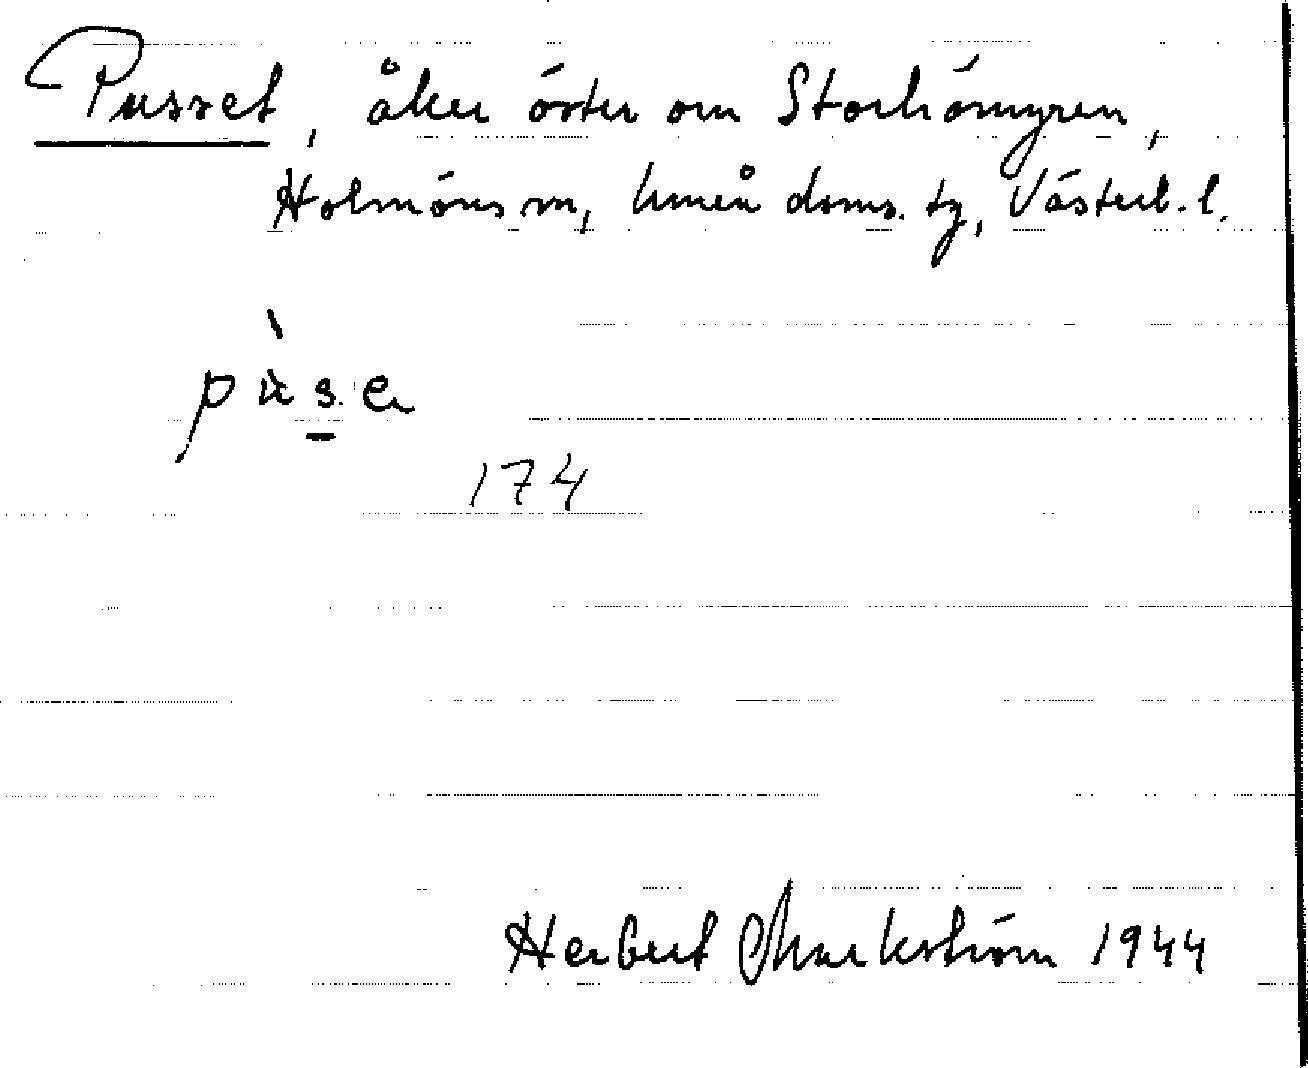 Pusset, åker öster om Storhömyren,
Holmöns sn, Umeå doms. tg, Västerb. l.
174
Herbert Markström 1944